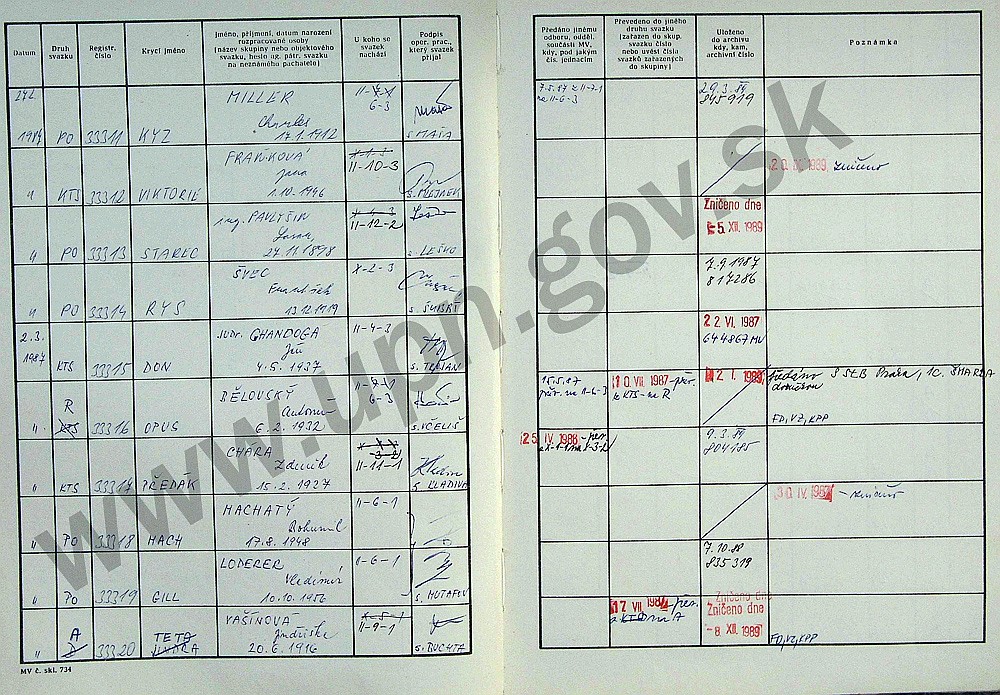 Datum
Druh svazku
Registr. číslo
Krycí jméno
Jméno, příjmení, datum narození
rozpracované osoby
(název skupiny nebo objektového
svazku, heslo ag. pátr. svazku
na neznámého pachatele)
U koho se
svazek
nachází
Podpis
oper. prac.,
který svazek
přijal
Předáno jinému
odboru, odděl.
součásti MV,
kdy, pod jakým
čís. jednacím
Převedeno do jiného
druhu svazku
(zařazen do skup.
svazku číslo
nebo uvést čísla
svazků zařazených
do skupiny)
Uloženo
do archivu
kdy, kam,
archivní číslo
Poznámka
MILLER
Charles
1987 PO 33311 KYZ 17.1.1912 6-3 s. MAŤA
7.5.87
na II-6-3
29.3.89
845919
FRAŇKOVÁ
Jana
" KTS 33312 VIKTORIE 1.10.1946 II-10-3
20.IX.1989 zničeno
ing. PAVLYSIN
" PO 33313 STAREC 27.11.1898 II-12-2 s. LEŠKO
Zničeno dne
-5. XII. 1989
ŠVEC
František
" PO 33314 RYS 13.12.1919 X-2-3
7.9.1987
817286
2.3.
1987 KTS 33315 DON
JUDr. CHANDOGA
Jiří
4.5.1937
II-4-3
22. VI. 1987
644867 MV
BĚLOVSKÝ
Antonín
R
" KTS 33316 OPUS 6.2.1932 6-3 s. VČELIŠ
15.5.87
na II-6-3
0. VII. 1987 - přer.
z KTS - na R
2. I. 1989
předáno S StB Praha, 1C. ŠMARDA
FD, VZ, KPP
CHARA
Zdeněk
" KTS 33317 PŘEDÁK 15.2.1927 II-11-1 s. KLADIVA
25. IV. 1988
9.3.89
804185
MACHATÝ
Bohumil
" PO 33318 MACH 17.8.1948 II-6-1
IV. 1987 - zničeno
LODERER
Vladimír
" PO 33319 GILL 10.10.1956 II-6-1 s. MUTAFOV
7.10.88
835319
VAŠINOVÁ
Jindřiška
A
" 33320 TETA 20.6.1916 II-9-1 s. BUCHTA
VII. 1987 - přer.
na A
Zničeno dne
Zničeno dne
-8. XII. 1989
FD, VZ, KPP
MV č. skl. 734
www.upn.gov.sk